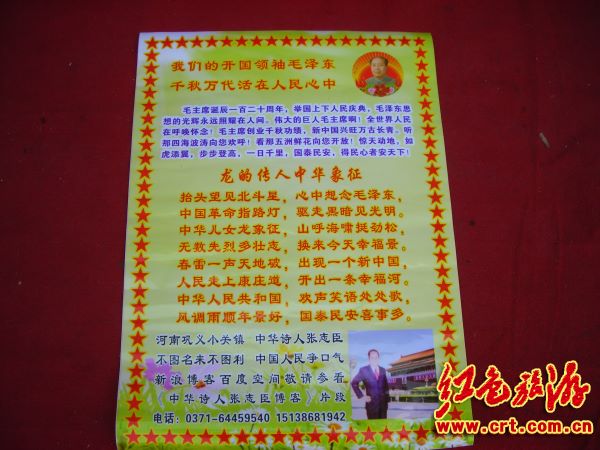 我们的开国领袖毛泽东
千秋万代活在人民心中
毛主席诞辰一百二十周年，举国上下人民庆典，毛泽东思
想的光辉永远照耀在人间。伟大的巨人毛主席啊！全世界人民
在呼唤怀念！毛主席创业千秋功绩，新中国兴旺万古长青。听
那四海波涛向您欢呼！看那五洲鲜花向您开放！惊天动地，如
虎添翼，步步登高，一日千里，国泰民安，得民心者安天下！
龙的传人中华象征
抬头望见北斗星，心中想念毛泽东，
中国革命指路灯，驱走黑暗见光明。
中华儿女龙象征，山呼海啸挺劲松，
无数先烈多壮志，换来今天幸福景。
春雷一声天地破，出现一个新中国，
人民走上康庄道，开出一条幸福河。
中华人民共和国，欢声笑语处处歌，
风调雨顺年景好，国泰民安喜事多。
河南巩义小关镇 中华诗人张志臣
不图名来不图利 中国人民争口气
新浪博客百度空间敬请参看
中华诗人张志臣博客》片段
电话：0371-64459540 15138681942
红色旅游
www.crt.com.cn